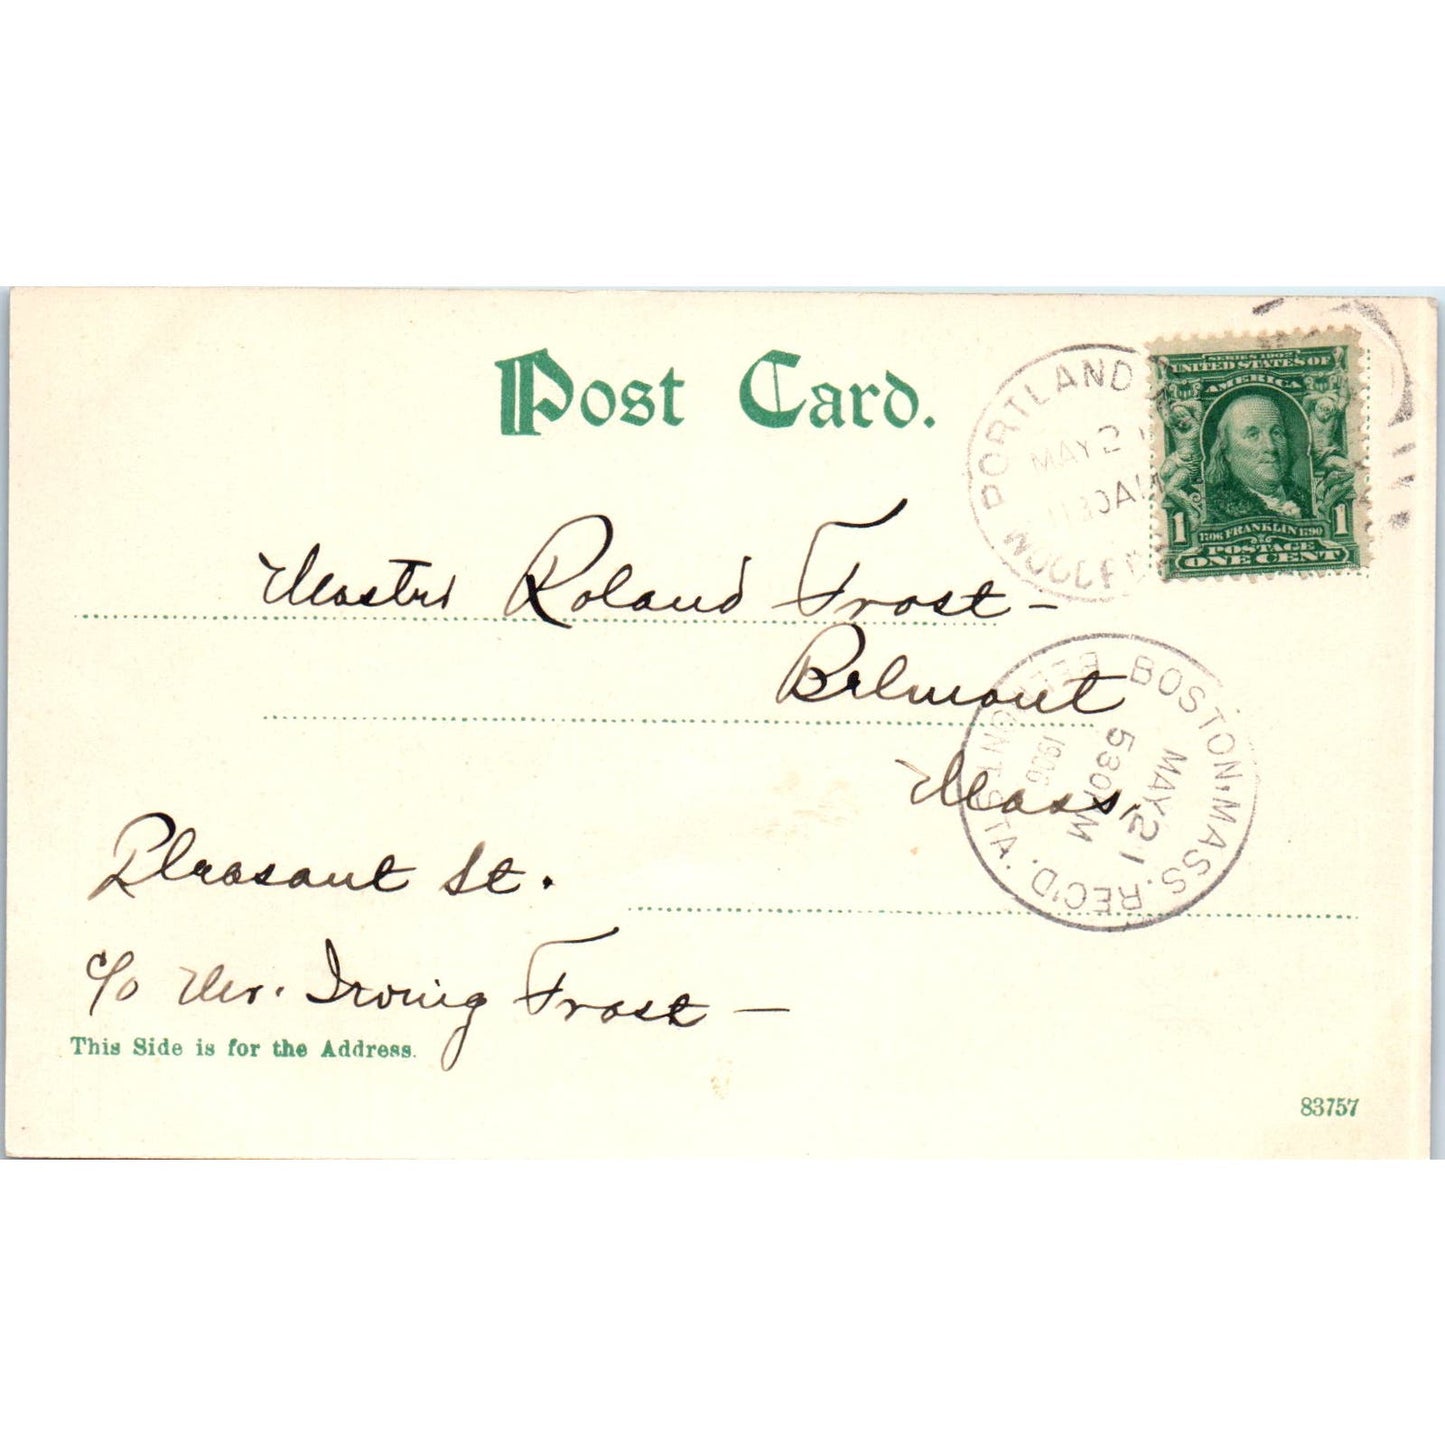 Post Card.
PORTLAND
MAY 21
1130 AM
WOODF
SERIES 1902
UNITED STATES OF
AMERICA
1 1706 FRANKLIN 1790 1
POSTAGE
ONE CENT
Master Roland Frost –
Belmont
Mass,
BOSTON, MASS. REC'D.
BELMONT STA.
MAY 21
530 PM
1906
Pleasant St.
c/o Mr. Irving Frost –
This Side is for the Address.
83757